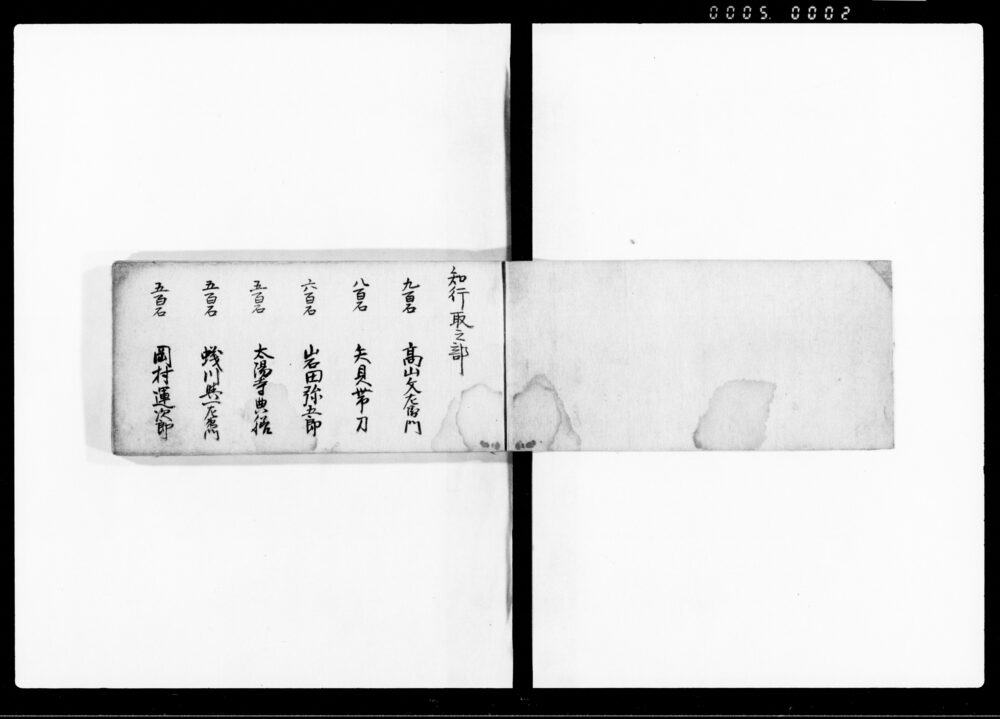 0005. 0002
知行取之部
九百石 高山文左衛門
八百石 矢貝帯刀
六百石 岩田弥五郎
五百石 太陽寺典
五百石 蜷川 左衛門
五百石 岡村運次郎